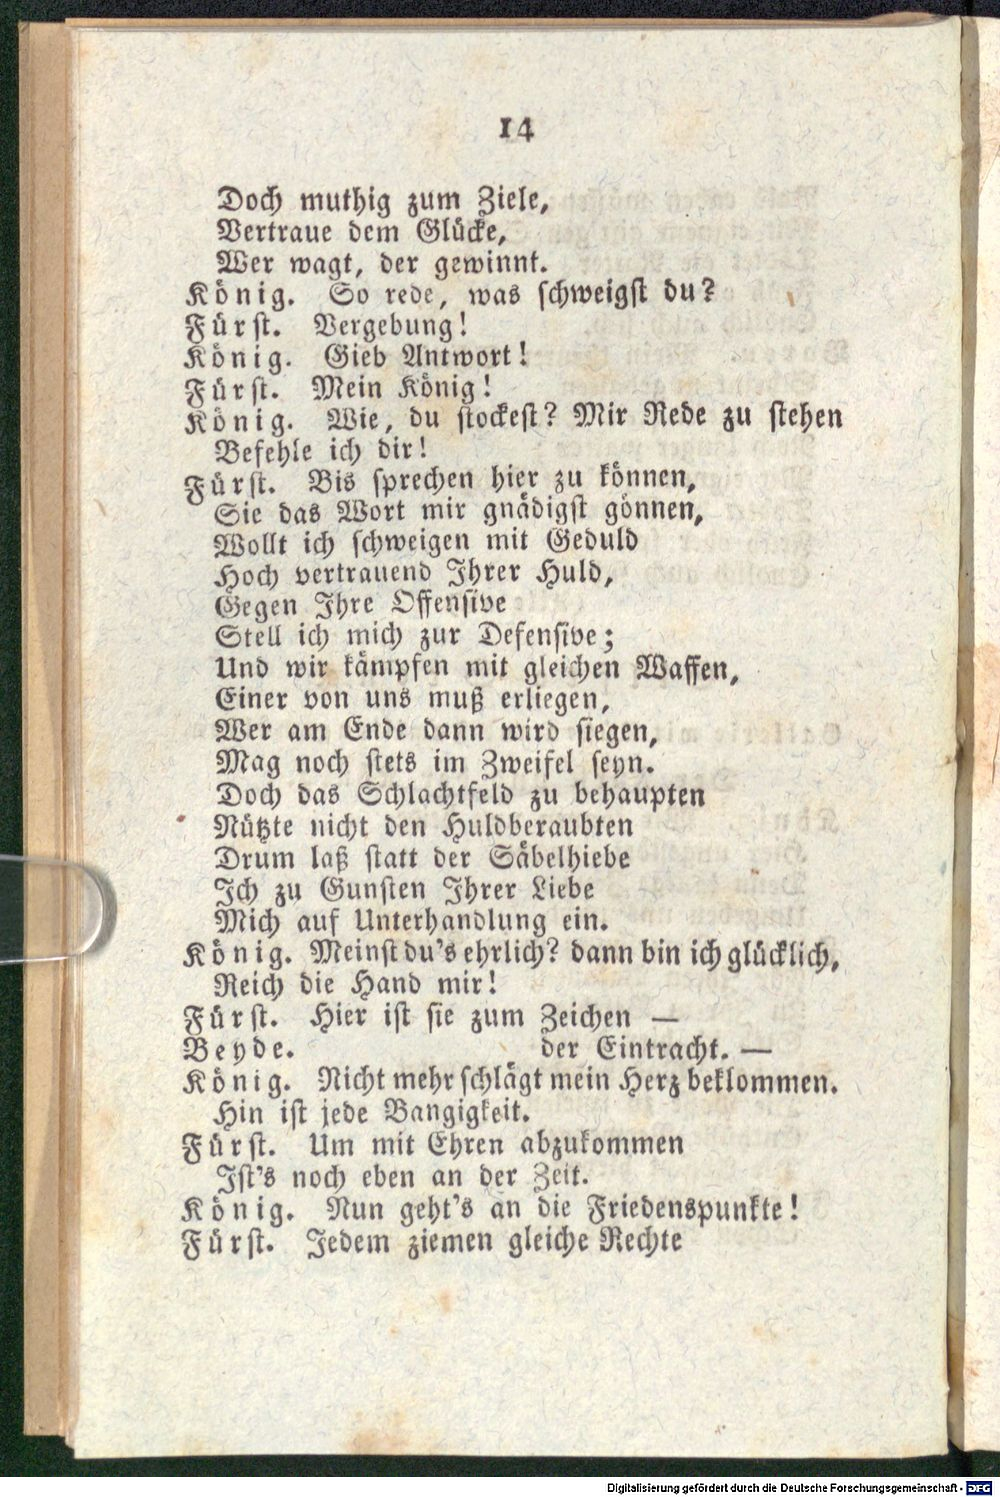 14
Doch muthig zum Ziele,
Vertraue dem Glücke,
Wer wagt, der gewinnt.
König. So rede, was schweigst du?
Fürst. Vergebung!
König. Gieb Antwort!
Fürst. Mein König!
König. Wie, du stockest? Mir Rede zu stehen
Befehle ich dir!
Fürst. Bis sprechen hier zu können,
Sie das Wort mir gnädigst gönnen,
Wollt ich schweigen mit Geduld
Hoch vertrauend Ihrer Huld,
Gegen Ihre Offensive
Stell ich mich zur Defensive;
Und wir kämpfen mit gleichen Waffen,
Einer von uns muß erliegen,
Wer am Ende dann wird siegen,
Mag noch stets im Zweifel seyn.
Doch das Schlachtfeld zu behaupten
Nützte nicht den Huldberaubten
Drum laß statt der Säbelhiebe
Ich zu Gunsten Ihrer Liebe
Mich auf Unterhandlung ein.
König. Meinst du's ehrlich? dann bin ich glücklich,
Reich die Hand mir!
Fürst. Hier ist sie zum Zeichen —
Beyde. der Eintracht. —
König. Nicht mehr schlägt mein Herz beklommen.
Hin ist jede Bangigkeit.
Fürst. Um mit Ehren abzukommen
Ist's noch eben an der Zeit.
König. Nun geht's an die Friedenspunkte!
Fürst. Jedem ziemen gleiche Rechte
Digitalisierung gefördert durch die Deutsche Forschungsgemeinschaft - DFG